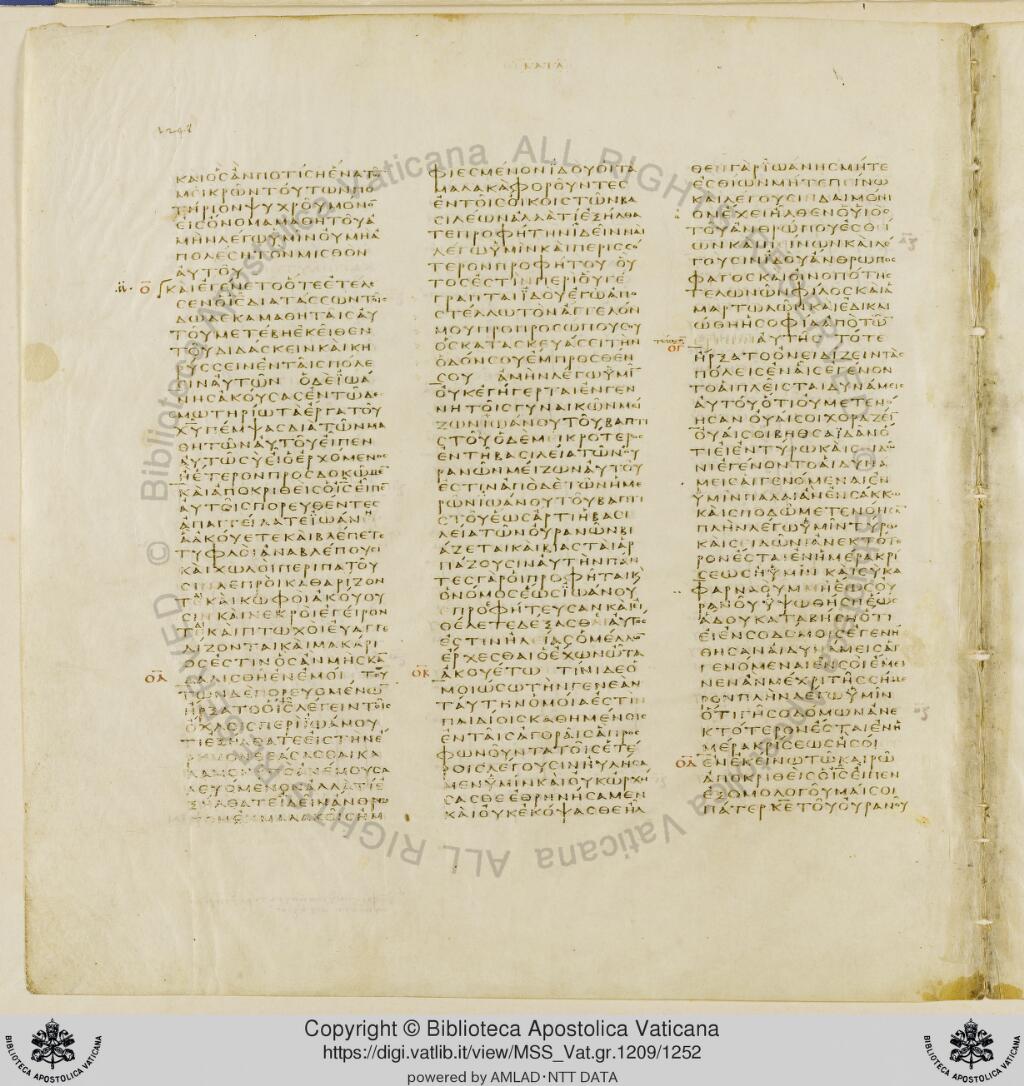 ΚΑΤΑ
ΚΑΙΟϹΑΝΠΟΤΙϹΗΕΝΑΤΩ
ΜΕΙΚΡΩΝΤΟΥΤΩΝΠΟ
ΤΗΡΙΟΝΨΥΧΡΟΥΜΟΝΟ
ΕΙϹΟΝΟΜΑΜΑΘΗΤΟΥΑ
ΜΗΝΛΕΓΩΥΜΙΝΟΥΜΗΑ
ΠΟΛΕϹΗΤΟΝΜΙϹΘΟΝ
ΑΥΤΟΥ
Ο ΚΑΙΕΓΕΝΕΤΟΟΤΕΕΤΕΛΕ
ϹΕΝΟΙϹΔΙΑΤΑϹϹΩΝΤΟΙϹ
ΔΩΔΕΚΑΜΑΘΗΤΑΙϹΑΥ
ΤΟΥΜΕΤΕΒΗΕΚΕΙΘΕΝ
ΤΟΥΔΙΔΑϹΚΕΙΝΚΑΙΚΗ
ΡΥϹϹΕΙΝΕΝΤΑΙϹΠΟΛΕ
ϹΙΝΑΥΤΩΝ ΟΔΕΙΩΑ
ΝΗϹΑΚΟΥϹΑϹΕΝΤΩΔΕ
ϹΜΩΤΗΡΙΩΤΑΕΡΓΑΤΟΥ
ΧΥΠΕΜΨΑϹΔΙΑΤΩΝΜΑ
ΘΗΤΩΝΑΥΤΟΥΕΙΠΕΝ
ΑΥΤΩϹΥΕΙΟΕΡΧΟΜΕΝΟϹ
ΗΕΤΕΡΟΝΠΡΟϹΔΟΚΩΜΕ
ΚΑΙΑΠΟΚΡΙΘΕΙϹΟΙϹΕΙΠΕ
ΑΥΤΟΙϹΠΟΡΕΥΘΕΝΤΕϹ
ΑΠΑΓΓΕΙΛΑΤΕΙΩΑΝΕΙ
ΑΑΚΟΥΕΤΕΚΑΙΒΛΕΠΕΤΕ
ΤΥΦΛΟΙΑΝΑΒΛΕΠΟΥϹΙ
ΚΑΙΧΩΛΟΙΠΕΡΙΠΑΤΟΥ
ϹΙΝΛΕΠΡΟΙΚΑΘΑΡΙΖΟΝ
ΤΑΙΚΑΙΚΩΦΟΙΑΚΟΥΟΥ
ϹΙΝΚΑΙΝΕΚΡΟΙΕΓΕΙΡΟΝ
ΤΑΙΚΑΙΠΤΩΧΟΙΕΥΑΓΓΕ
ΛΙΖΟΝΤΑΙΚΑΙΜΑΚΑΡΙ
ΟϹΕϹΤΙΝΟϹΑΝΜΗϹΚΑ
ΟΑ ΔΑΛΙϹΘΗΕΝΕΜΟΙ ΤΟΥ
ΤΩΝΔΕΠΟΡΕΥΟΜΕΝΩ
ΗΡΞΑΤΟΟΙϹΛΕΓΕΙΝΤΟΙϹ
ΟΧΛΟΙϹΠΕΡΙΙΩΑΝΟΥ
ΤΙΕΞΗΛΘΑΤΕΕΙϹΤΗΝΕ
ΡΗΜΟΝΘΕΑϹΑϹΘΑΙΚΑ
ΛΑΜΟΝΥΠΟΑΝΕΜΟΥϹΑ
ΛΕΥΟΜΕΝΟΝΑΛΛΑΤΙΕ
ΞΗΛΘΑΤΕΙΔΕΙΝΑΝΘΡΩ
ΠΟΝΕΝΜΑΛΑΚΟΙϹΗΜ
ΦΙΕϹΜΕΝΟΝΙΔΟΥΟΙΤΑ
ΜΑΛΑΚΑΦΟΡΟΥΝΤΕϹ
ΕΝΤΟΙϹΟΙΚΟΙϹΤΩΝΒΑ
ϹΙΛΕΩΝΑΛΛΑΤΙΕΞΗΛΘΑ
ΤΕΠΡΟΦΗΤΗΝΙΔΕΙΝΝΑΙ
ΛΕΓΩΥΜΙΝΚΑΙΠΕΡΙϹϹΟ
ΤΕΡΟΝΠΡΟΦΗΤΟΥ ΟΥ
ΤΟϹΕϹΤΙΝΠΕΡΙΟΥΓΕ
ΓΡΑΠΤΑΙΙΔΟΥΕΓΩΑΠΟ
ϹΤΕΛΛΩΤΟΝΑΓΓΕΛΟΝ
ΜΟΥΠΡΟΠΡΟϹΩΠΟΥϹΟΥ
ΟϹΚΑΤΑϹΚΕΥΑϹΕΙΤΗΝ
ΟΔΟΝϹΟΥΕΜΠΡΟϹΘΕΝ
ϹΟΥ ΑΜΗΝΛΕΓΩΥΜΙ
ΟΥΚΕΓΗΓΕΡΤΑΙΕΝΓΕΝ
ΝΗΤΟΙϹΓΥΝΑΙΚΩΝΜΕΙ
ΖΩΝΙΩΑΝΟΥΤΟΥΒΑΠΤΙ
ϹΤΟΥΟΔΕΜΕΙΚΡΟΤΕΡΟϹ
ΕΝΤΗΒΑϹΙΛΕΙΑΤΩΝΟΥ
ΡΑΝΩΝΜΕΙΖΩΝΑΥΤΟΥ
ΕϹΤΙΝΑΠΟΔΕΤΩΝΗΜΕ
ΡΩΝΙΩΑΝΟΥΤΟΥΒΑΠΤΙ
ϹΤΟΥΕΩϹΑΡΤΙΗΒΑϹΙ
ΛΕΙΑΤΩΝΟΥΡΑΝΩΝΒΙ
ΑΖΕΤΑΙΚΑΙΒΙΑϹΤΑΙΑΡ
ΠΑΖΟΥϹΙΝΑΥΤΗΝΠΑΝ
ΤΕϹΓΑΡΟΙΠΡΟΦΗΤΑΙΚΑΙ
ΟΝΟΜΟϹΕΩϹΙΩΑΝΟΥ
ΕΠΡΟΦΗΤΕΥϹΑΝΚΑΙΕΙ
ΘΕΛΕΤΕΔΕΞΑϹΘΑΙΑΥΤΟϹ
ΕϹΤΙΝΗΛΕΙΑϹΟΜΕΛΛΩ
ΕΡΧΕϹΘΑΙΟΕΧΩΝΩΤΑ
ΟΚ ΑΚΟΥΕΤΩ ΤΙΝΙΔΕΟ
ΜΟΙΩϹΩΤΗΝΓΕΝΕΑΝ
ΤΑΥΤΗΝΟΜΟΙΑΕϹΤΙΝ
ΠΑΙΔΙΟΙϹΚΑΘΗΜΕΝΟΙϹ
ΕΝΤΑΙϹΑΓΟΡΑΙϹΑΠΡΟϹ
ΦΩΝΟΥΝΤΑΤΟΙϹΕΤΕ
ΡΟΙϹΛΕΓΟΥϹΙΝΗΥΛΗϹΑ
ΜΕΝΥΜΙΝΚΑΙΟΥΚΩΡΧΗ
ϹΑϹΘΕΕΘΡΗΝΗϹΑΜΕΝ
ΚΑΙΟΥΚΕΚΟΨΑϹΘΕΗΛ
ΘΕΝΓΑΡΙΩΑΝΗϹΜΗΤΕ
ΕϹΘΙΩΝΜΗΤΕΠΕΙΝΩ
ΚΑΙΛΕΓΟΥϹΙΝΔΑΙΜΟΝΙ
ΟΝΕΧΕΙΗΛΘΕΝΟΥΙΟϹ
ΤΟΥΑΝΘΡΩΠΟΥΕϹΘΙ
ΩΝΚΑΙΠΕΙΝΩΝΚΑΙΛΕ
ΓΟΥϹΙΝΙΔΟΥΑΝΘΡΩΠΟϹ
ΦΑΓΟϹΚΑΙΟΙΝΟΠΟΤΗϹ
ΤΕΛΩΝΩΝΦΙΛΟϹΚΑΙΑ
ΜΑΡΤΩΛΩΝΚΑΙΕΔΙΚΑΙ
ΩΘΗΗϹΟΦΙΑΑΠΟΤΩ
ΕΡΓΩΝΑΥΤΗϹ ΤΟΤΕ
ΟΓ ΗΡΞΑΤΟΟΝΕΙΔΙΖΕΙΝΤΑϹ
ΠΟΛΕΙϹΕΝΑΙϹΕΓΕΝΟΝ
ΤΟΑΙΠΛΕΙϹΤΑΙΔΥΝΑΜΕΙϹ
ΑΥΤΟΥΟΤΙΟΥΜΕΤΕΝΟ
ΗϹΑΝΟΥΑΙϹΟΙΧΟΡΑΖΕΙ
ΟΥΑΙϹΟΙΒΗΘϹΑΙΔΑΝΟ
ΤΙΕΙΕΝΤΥΡΩΚΑΙϹΙΔΩ
ΝΙΕΓΕΝΟΝΤΟΑΙΔΥΝΑ
ΜΕΙϹΑΙΓΕΝΟΜΕΝΑΙΕΝ
ΥΜΙΝΠΑΛΑΙΑΝΕΝϹΑΚΚΩ
ΚΑΙϹΠΟΔΩΜΕΤΕΝΟΗϹΑ
ΠΛΗΝΛΕΓΩΥΜΙΝΤΥΡΩ
ΚΑΙϹΙΔΩΝΙΑΝΕΚΤΟΤΕ
ΡΟΝΕϹΤΑΙΕΝΗΜΕΡΑΚΡΙ
ϹΕΩϹΗΥΜΙΝ ΚΑΙϹΥΚΑ
ΦΑΡΝΑΟΥΜΜΗΕΩϹΟΥ
ΡΑΝΟΥΥΨΩΘΗϹΗΕΩϹ
ΑΔΟΥΚΑΤΑΒΗϹΗΟΤΙ
ΕΙΕΝϹΟΔΟΜΟΙϹΕΓΕΝΗ
ΘΗϹΑΝΑΙΔΥΝΑΜΕΙϹΑΙ
ΓΕΝΟΜΕΝΑΙΕΝϹΟΙΕΜΕΙ
ΝΕΝΑΝΜΕΧΡΙΤΗϹϹΗΜΕ
ΡΟΝΠΛΗΝΛΕΓΩΥΜΙΝ
ΟΤΙΓΗϹΟΔΟΜΩΝΑΝΕ
ΚΤΟΤΕΡΟΝΕϹΤΑΙΕΝΗ
ΜΕΡΑΚΡΙϹΕΩϹΗϹΟΙ
ΟΔ ΕΝΕΚΕΙΝΩΤΩΚΑΙΡΩ
ΑΠΟΚΡΙΘΕΙϹΟΙϹΕΙΠΕΝ
ΕΞΟΜΟΛΟΓΟΥΜΑΙϹΟΙ
ΠΑΤΕΡΚΕΤΟΥΟΥΡΑΝΟΥ
Copyright © Biblioteca Apostolica Vaticana
https://digi.vatlib.it/view/MSS_Vat.gr.1209/1252
powered by AMLAD·NTT DATA